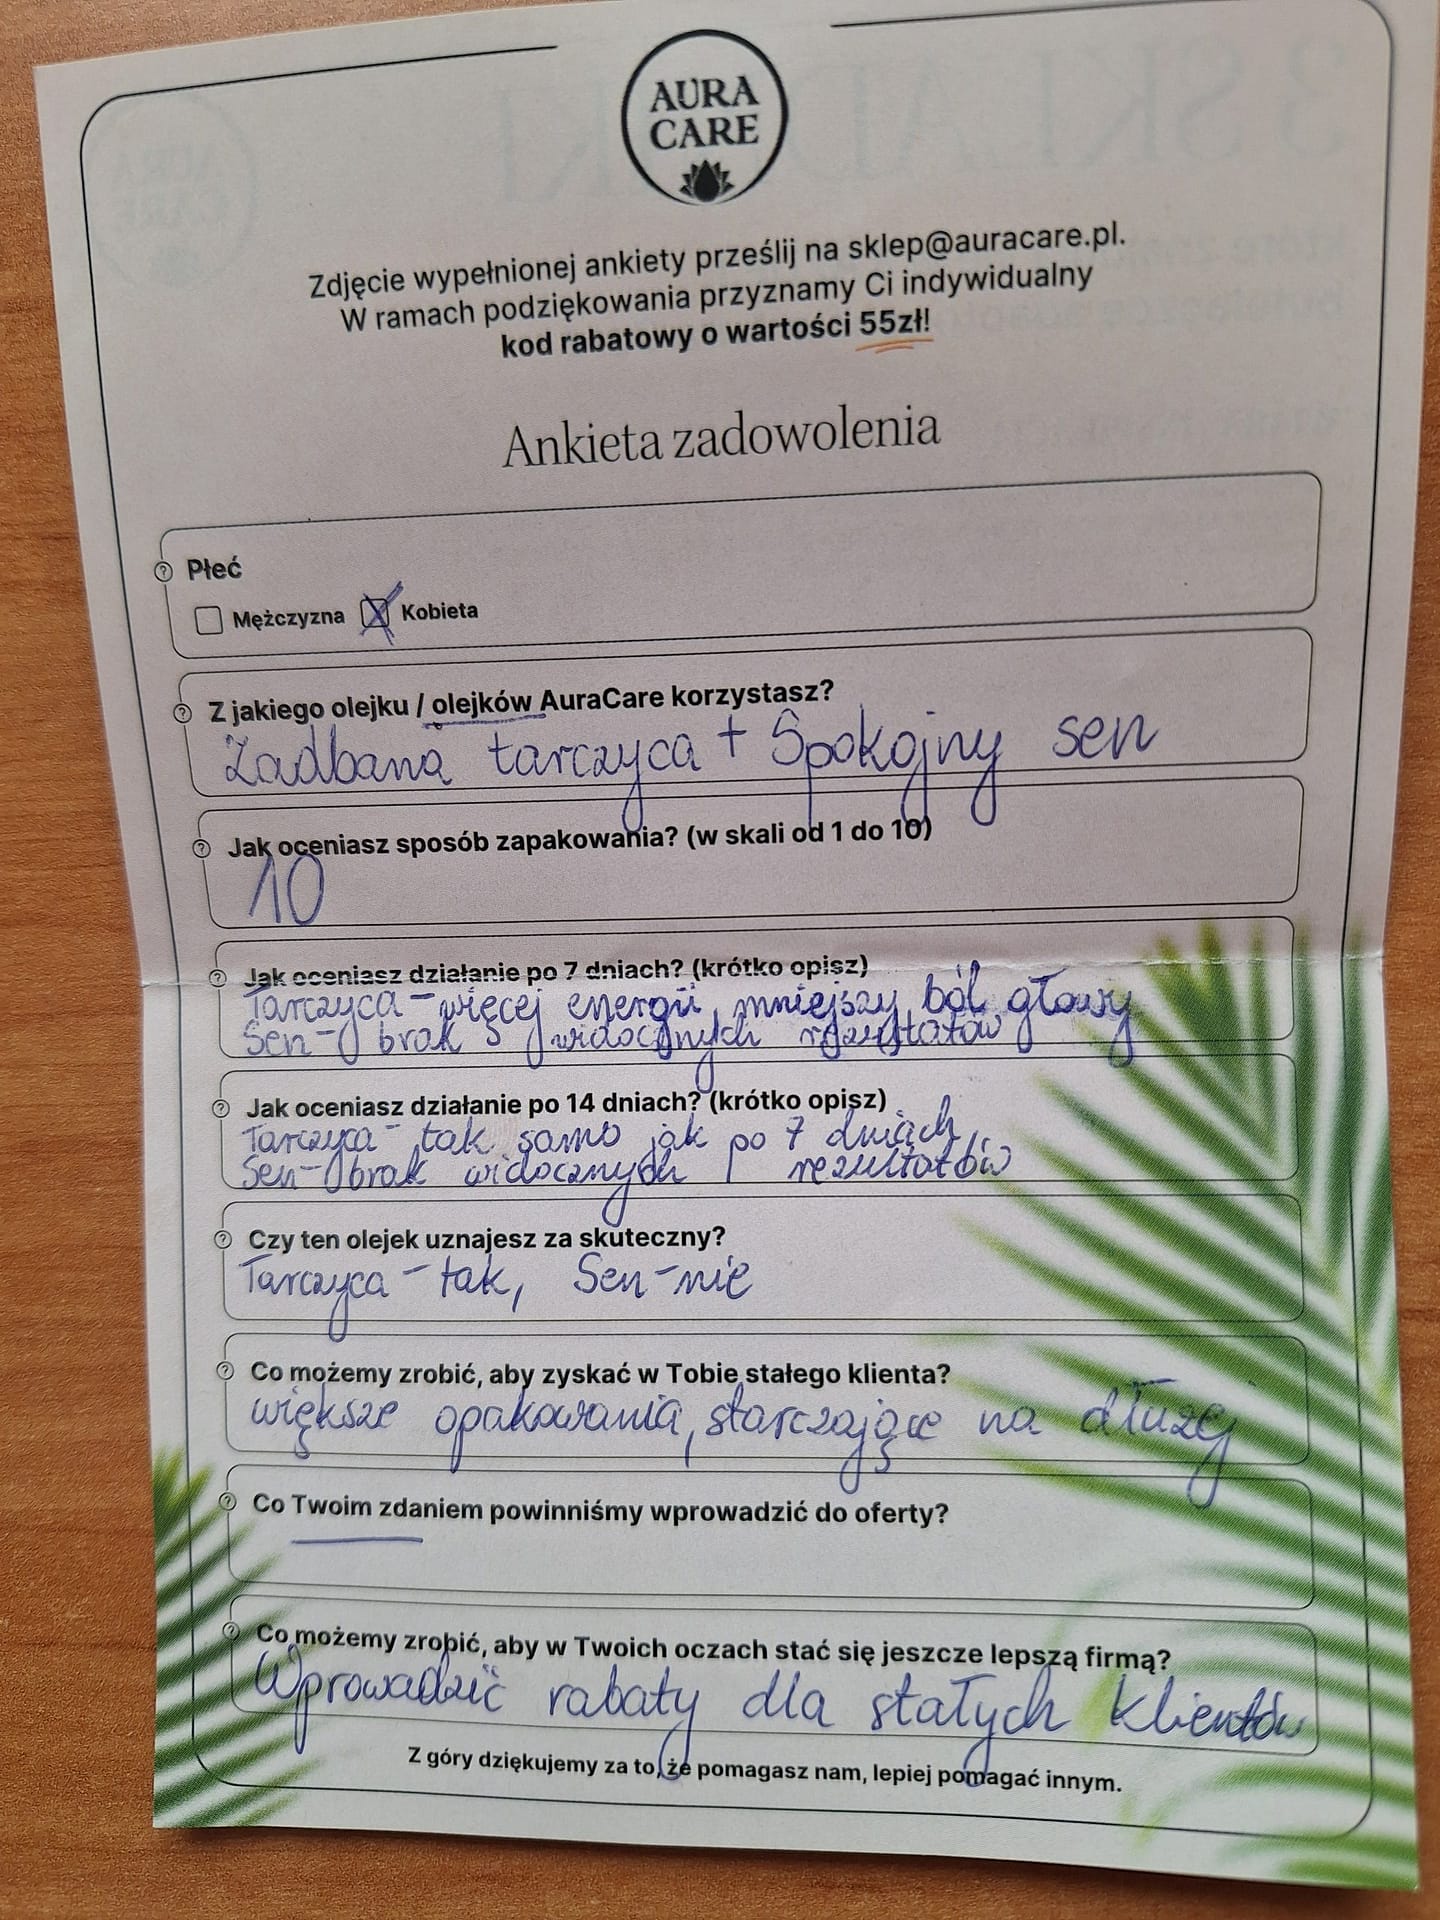 AURA
CARE
Zdjęcie wypełnionej ankiety prześlij na sklep@auracare.pl.
W ramach podziękowania przyznamy Ci indywidualny
kod rabatowy o wartości 55zł!
Ankieta zadowolenia
Płeć
Mężczyzna X Kobieta
Z jakiego olejku / olejków AuraCare korzystasz?
Zadbana tarczyca + Spokojny sen
Jak oceniasz sposób zapakowania? (w skali od 1 do 10)
10
Jak oceniasz działanie po 7 dniach? (krótko opisz)
Tarczyca - więcej energii, mniejszy ból głowy
Sen - brak widocznych rezultatów
Jak oceniasz działanie po 14 dniach? (krótko opisz)
Tarczyca - tak samo jak po 7 dniach,
Sen - brak widocznych rezultatów
Czy ten olejek uznajesz za skuteczny?
Tarczyca - tak, Sen - nie
Co możemy zrobić, aby zyskać w Tobie stałego klienta?
większe opakowania, starczające na dłużej
Co Twoim zdaniem powinniśmy wprowadzić do oferty?
Co możemy zrobić, aby w Twoich oczach stać się jeszcze lepszą firmą?
Wprowadzić rabaty dla stałych klientów
Z góry dziękujemy za to, że pomagasz nam, lepiej pomagać innym.